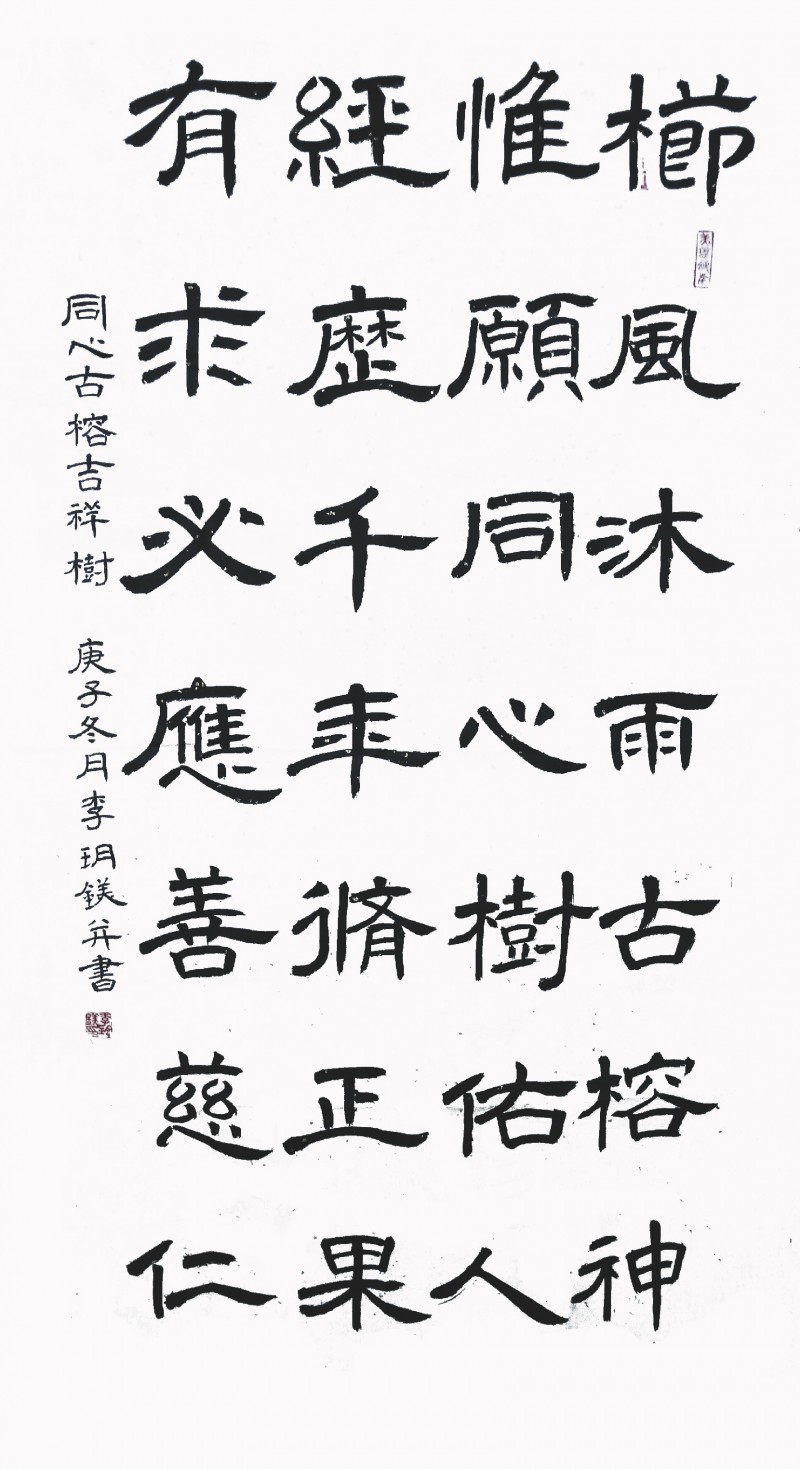 櫛風沐雨古榕神
惟願同心樹佑人
經歷千年脩正果
有求必應善慈仁
同心古榕吉祥樹 庚子冬月李玥鎂并書